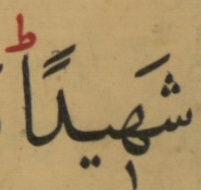 شَهِيدًا ؕ